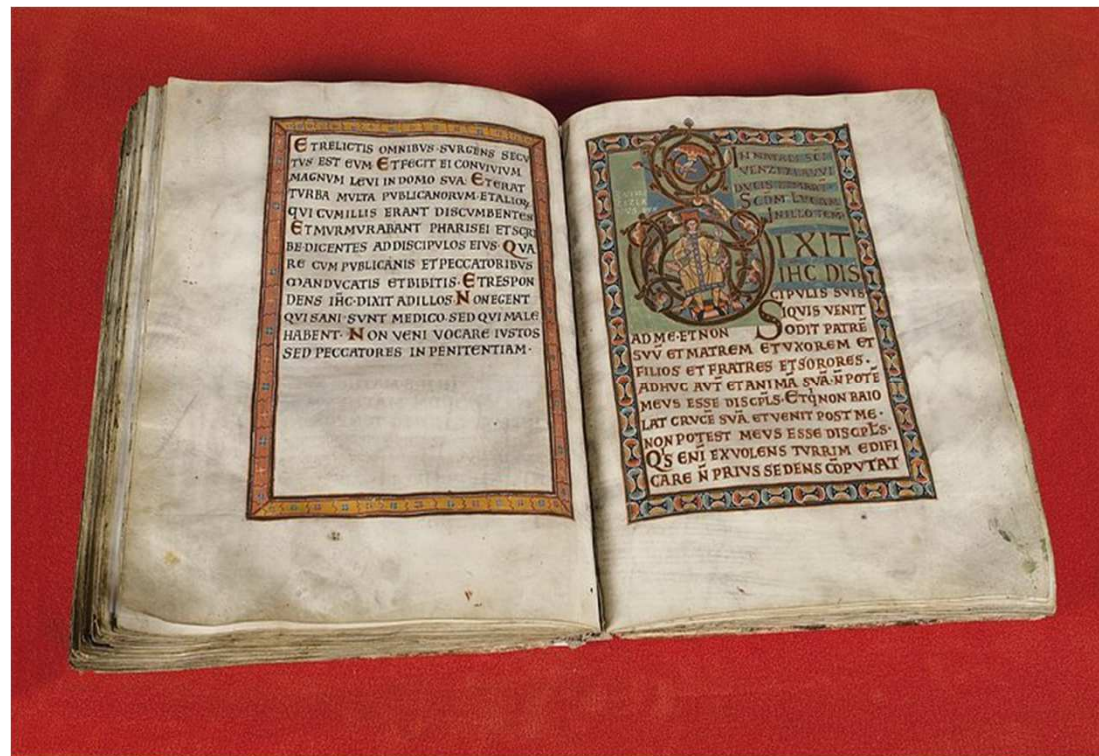 ETRELICTIS OMNIBVS · SVRGENS SECV
TVS EST EVM · ET FECIT EI CONVIVIVM
MAGNVM LEVI IN DOMO SVA · ET ERAT
TVRBA MVLTA PVBLICANORVM · ET ALIOR̄
QVI CVM ILLIS ERANT DISCVMBENTES
ET MVRMVRABANT PHARISEI ET SCRI
BE · DICENTES AD DISCIPVLOS EIVS · QVA
RE CVM PVBLICANIS ET PECCATORIBVS
MANDVCATIS ET BIBITIS · ET RESPON
DENS IH̄C · DIXIT AD ILLOS · NON EGENT
QVI SANI · SVNT MEDICO · SED QVI MALE
HABENT · NON VENI VOCARE IVSTOS
SED PECCATORES IN PENITENTIAM ·
IN NAT̄ SC̄I
VENZEZLAVVI
DVCIS ET MART̄
SCD̄M · LVCAM
IN ILLO TEMP̄
DIXIT
IHC · DIS
CIPVLIS SVIS
SIQVIS VENIT
AD ME · ET NON ODIT PATRĒ
SVV̄ ET MATREM ET VXOREM ET
FILIOS ET FRATRES ET SORORES ·
ADHVC AVT̄ ET ANIMĀ SVĀ · N̄ POTĒ
MEVS ESSE DISCPL̄S · ET Q̇ NON BAIO
LAT CRVCĒ SVĀ · ET VENIT POST ME ·
NON POTEST MEVS ESSE DISCPL̄S ·
Q'S ENĪ EX VOLENS TVRRIM EDIFI
CARE N̄ PRIVS SEDENS CŌPVTAT